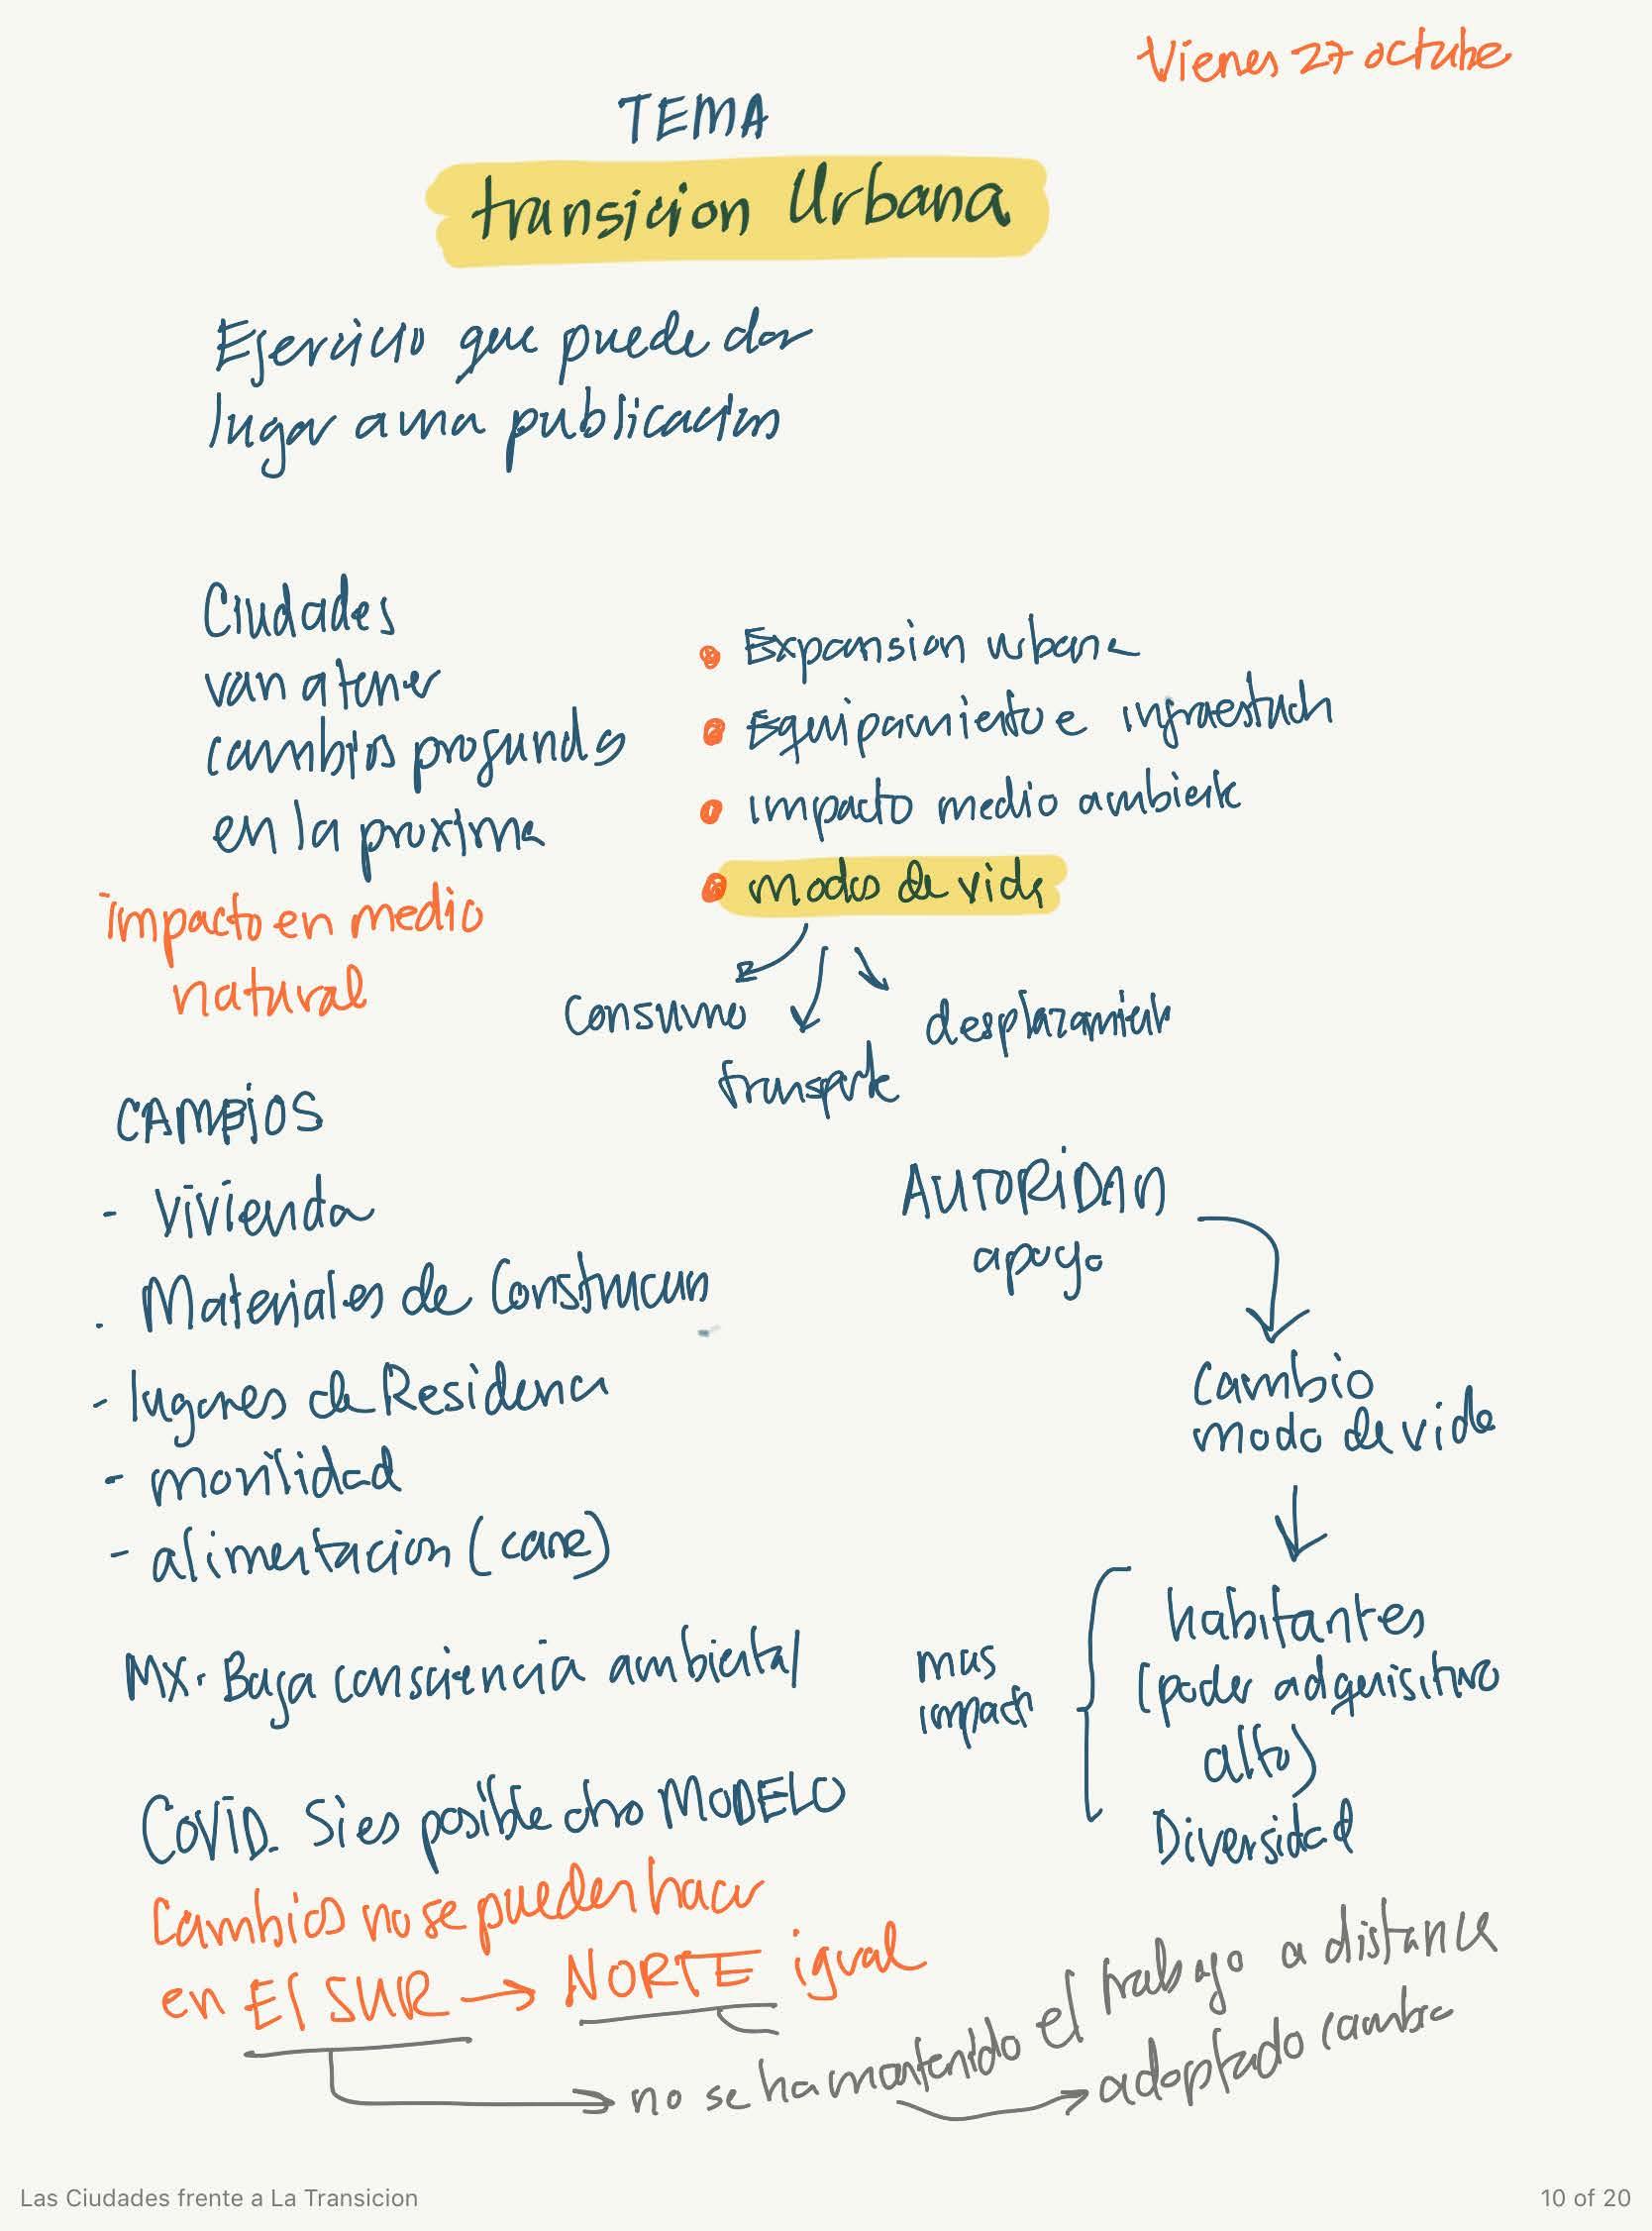 Vienes 27 octubre
TEMA
transicion Urbana
Ejercicio que puede dar
lugar a una publicacion
Ciudades
van a tener
cambios profundos
en la proxima
impacto en medio
natural
• Expansion urbana
• Equipamiento e infraestuch
• impacto medio ambiente
• modos de vida
Consumo
transporte
desplazamiento
CAMBiOS
- Vivienda
. Materiales de Construccion
- lugares de Residencia
- movilidad
- alimentacion (carne)
AUTORIDAD
apoyo
cambio
modo de vida
habitantes
(poder adquisitivo
alto)
Diversidad
mas
impacto
MX. Baja consciencia ambiental
COViD. Si es posible otro MODELO
Cambios no se pueden hacer
en El SUR → NORTE igual
no se ha mantenido el trabajo a distancia
adoptado cambio
Las Ciudades frente a La Transicion
10 of 20